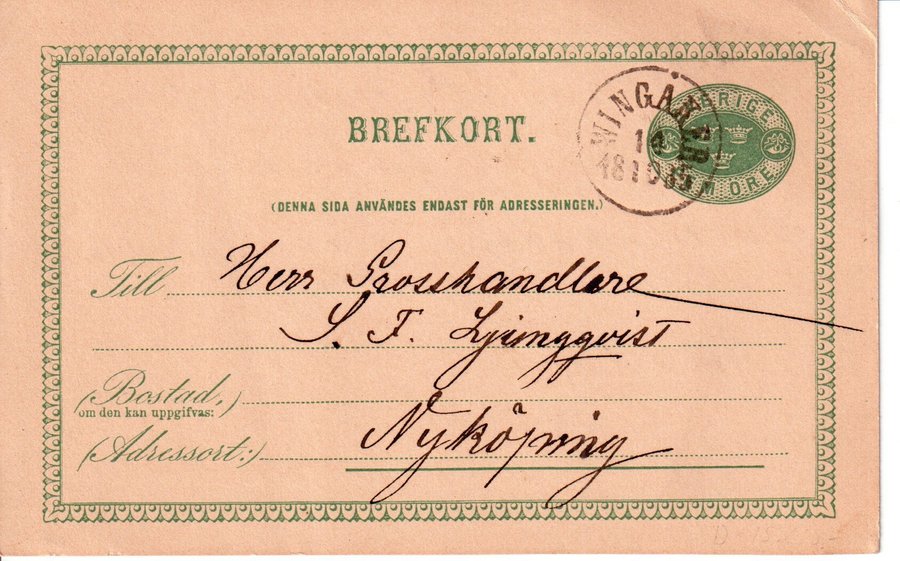 BREFKORT.
WINGÅKER
SVERIGE
FEM ÖRE
(DENNA SIDA ANVÄNDES ENDAST FÖR ADRESSERINGEN.)
Till Herr Grosshandlare
S. F. Ljungqvist
(Bostad,)
om den kan uppgifvas:
(Adressort:) Nyköping